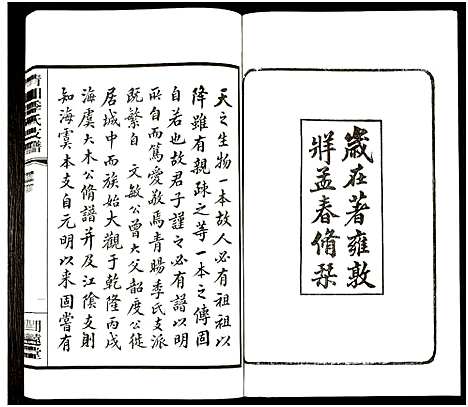 歲在著雍敦
牂孟春脩栞
天之生物一本故人必有祖祖以
降雖有親疎之等一本之傳固
自若也故君子謹之必有譜以明
所自而篤愛敬焉青暘季氏支派
既繁自文敏公曾大父韶度公徙
居城中而族始大觀于乾隆丙戌
海虞大木公脩譜并及江陰支則
知海虞本支自元明以來固嘗有
季氏支譜